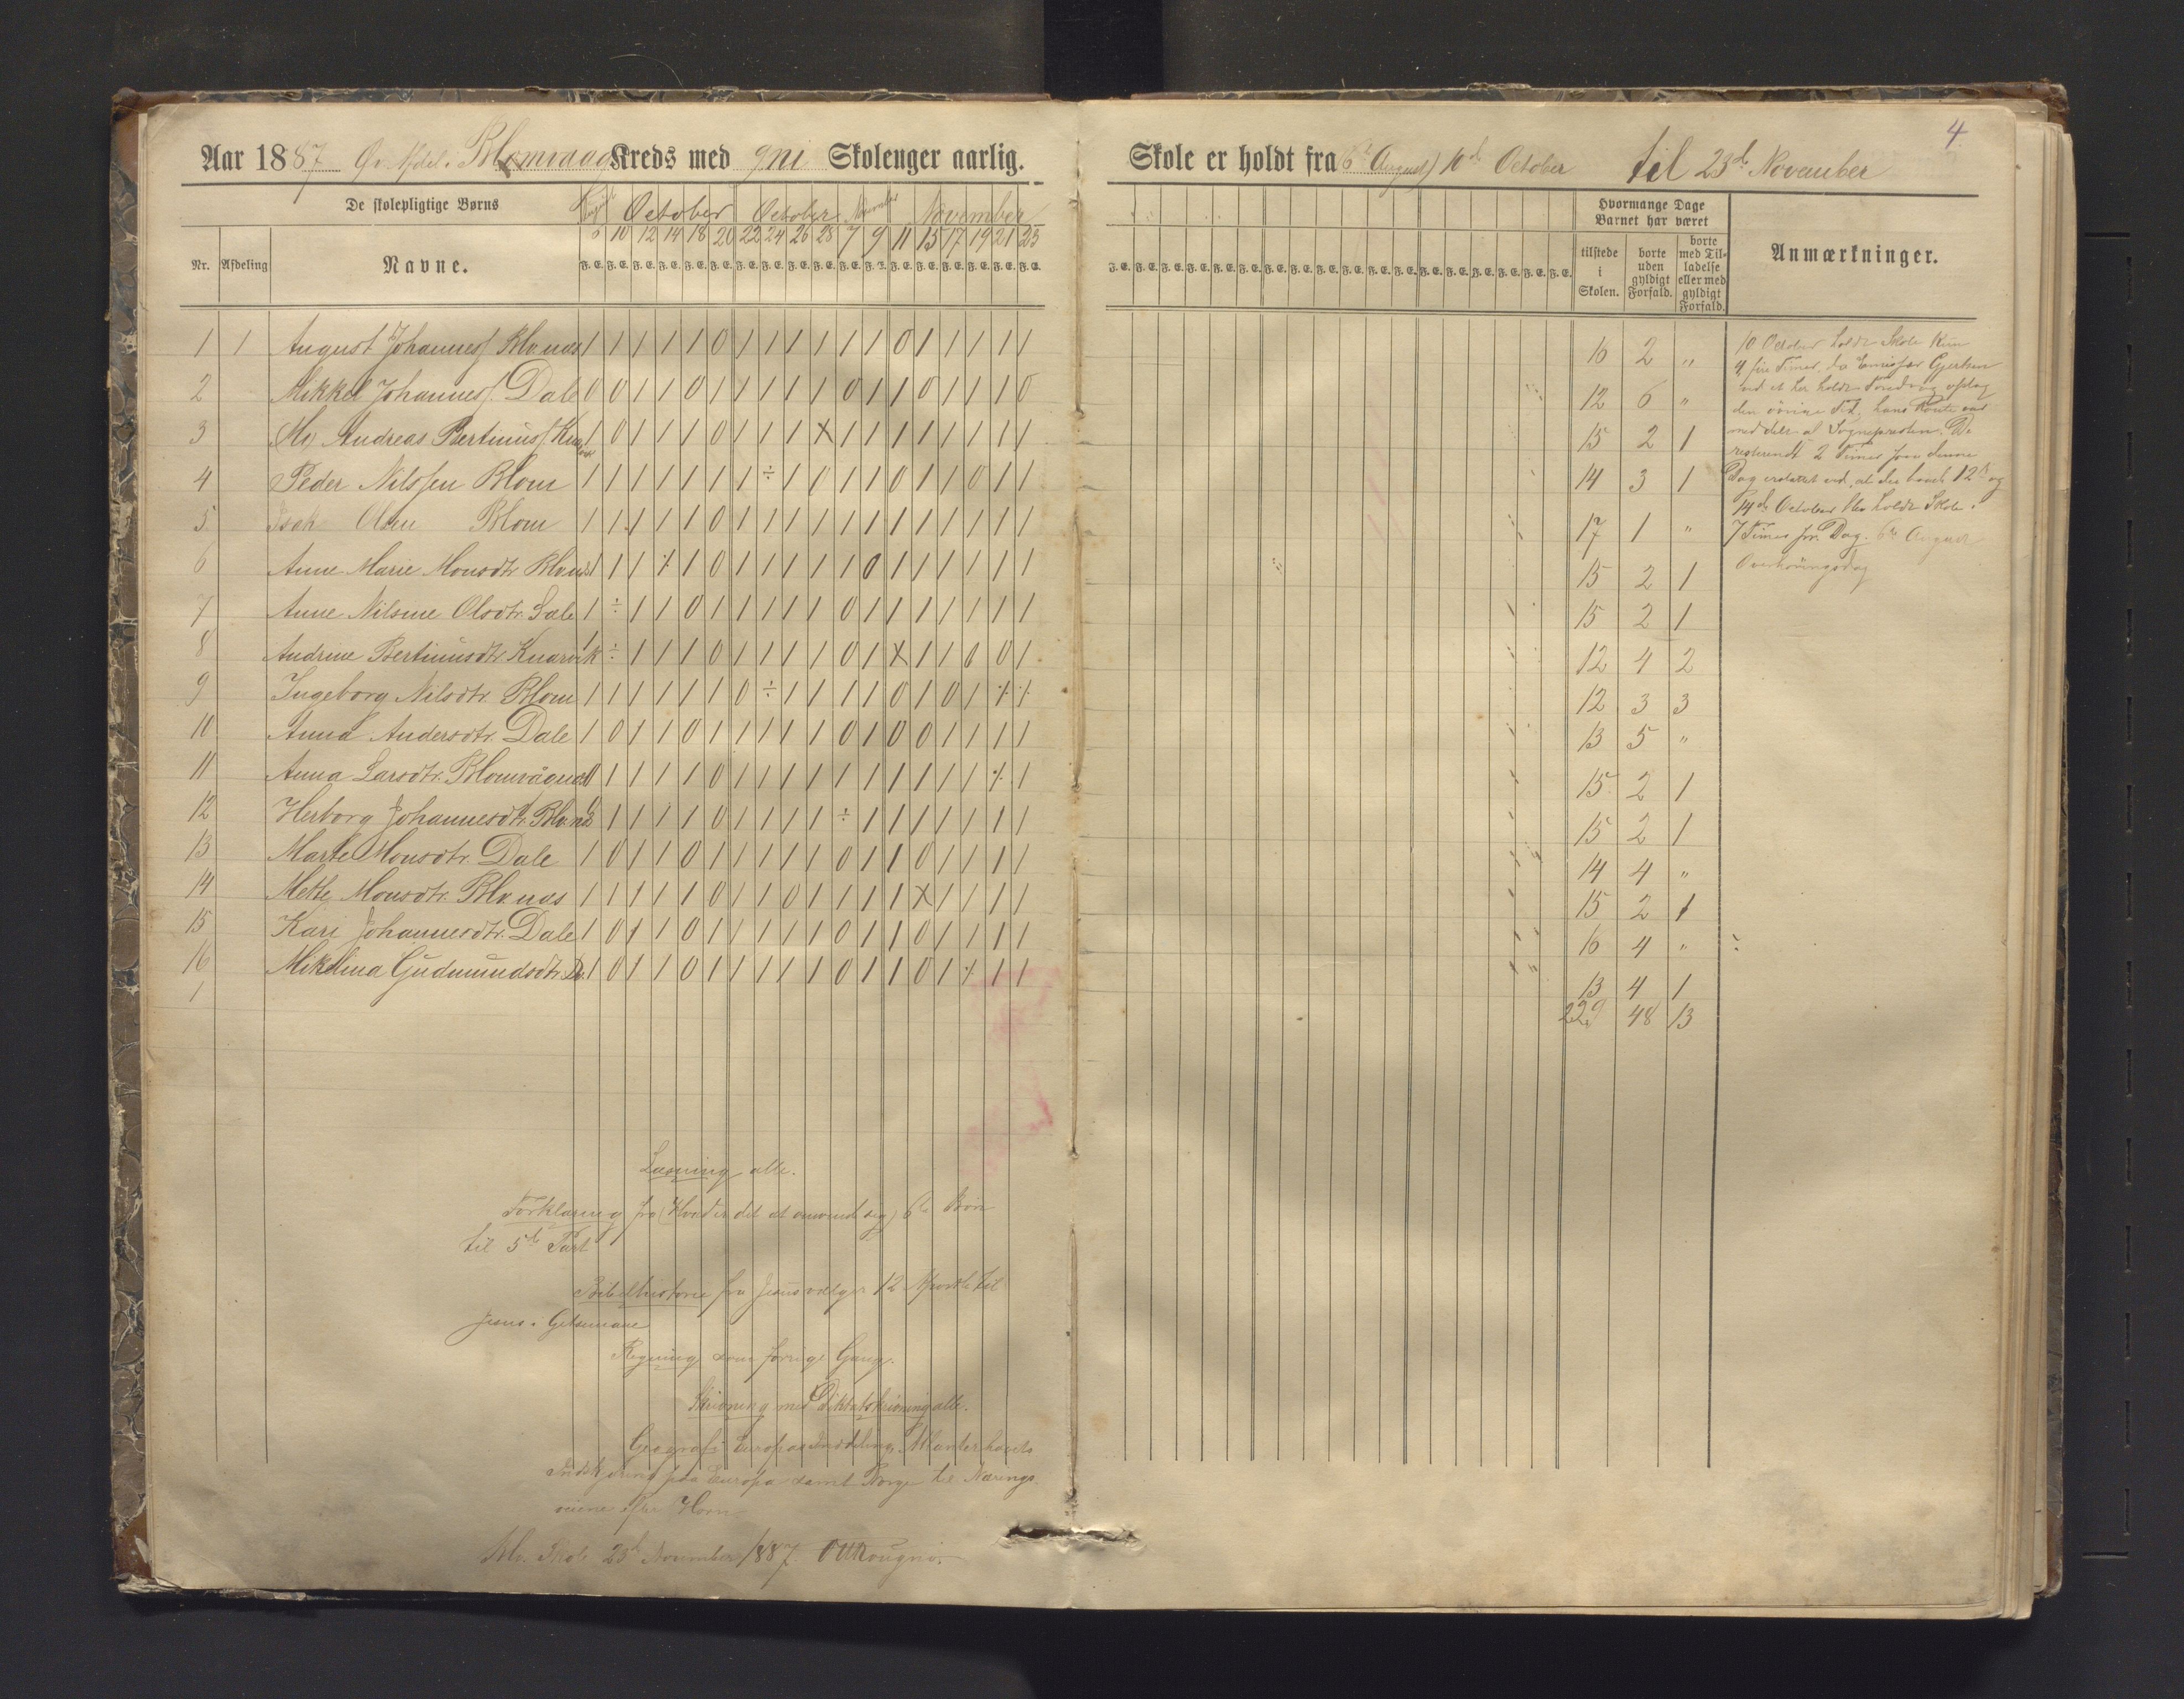 4.
Aar 1887 Øv. Afdel. Blomvaag Kreds med 9ni Skoleuger aarlig.
Skole er holdt fra (6te August) 10de October til 23de November
De skolepligtige Børns
August October October November November
Hvormange Dage Barnet har været
Anmærkninger.
Nr. Afdeling Navne.
6 10 12 14 18 20 22 24 26 28 7 9 11 15 17 19 21 23
tilstede i Skolen. borte uden gyldigt Forfald. borte med Tilladelse eller med gyldigt Forfald.
F. E. F. E. F. E. F. E. F. E. F. E. F. E. F. E. F. E. F. E. F. E. F. E. F. E. F. E. F. E. F. E. F. E. F. E.
F. E. F. E. F. E. F. E. F. E. F. E. F. E. F. E. F. E. F. E. F. E. F. E. F. E. F. E. F. E. F. E. F. E. F. E.
1 1 August Johanness. Blv.næs 1 1 1 1 1 0 1 1 1 1 1 1 0 1 1 1 1 1 16 2 "
2 Mikkel Johanness. Dale 0 0 1 1 0 1 1 1 1 1 0 1 1 0 1 1 1 0 12 6 "
3 Andreas Bertinuss. 1 0 1 1 1 0 1 1 1 X 1 1 1 1 1 1 1 1 15 2 1
4 Peder Nilssen Blom 1 1 1 1 1 1 1 ÷ 1 0 1 1 0 1 1 0 1 1 14 3 1
5 Isak Olsen Blom 1 1 1 1 1 0 1 1 1 1 1 1 1 1 1 1 1 1 17 1 "
6 Anne Marie Monsdtr. 1 1 1 ⁒ 1 0 1 1 1 1 1 0 1 1 1 1 1 1 15 2 1
7 Anne Nilsine Olsdtr. Dale 1 ÷ 1 1 0 1 1 1 1 1 0 1 1 1 1 1 1 1 15 2 1
8 Andrine Bertinusdtr. Knarvik 1 ÷ 1 1 1 0 1 1 1 1 0 1 X 1 1 0 0 1 12 4 2
9 Ingeborg Nilsdtr. Blom 1 1 1 1 1 1 0 ÷ 1 1 1 1 0 1 0 1 ⁒ ⁒ 12 3 3
10 Anna Andersdtr. Dale 1 0 1 1 0 1 1 1 1 1 0 1 0 0 1 1 1 1 13 5 "
11 Anna Larsdtr. Blomvågnæs 0 1 1 1 1 0 1 1 1 1 1 1 1 1 1 1 ⁒ 1 15 2 1
12 Herborg Johannesdtr. Blv.næs 0 1 1 1 1 0 1 1 1 1 ÷ 1 1 1 1 1 1 1 15 2 1
13 Marte Monsdtr. Dale 1 0 1 1 0 1 1 1 1 1 0 1 1 0 1 1 1 1 14 4 "
14 Mette Monsdtr. Blv.næs 1 1 1 1 1 0 1 1 0 1 1 1 1 X 1 1 1 1 15 2 1
15 Kari Johannesdtr. Dale 1 0 1 1 0 1 1 1 1 1 0 1 1 0 1 1 1 1 16 4 "
16 Mikelina Gudmundsdtr. D. 1 0 1 1 0 1 1 1 1 1 0 1 1 0 1 ⁒ 1 1 13 4 1
1 229 48 13
10 October holdt Skole kun
4 fire Timer, da Emissær Gjertsen
ved et her holdt Foredrag optog
den øvrige Tid, hans Route var
meddelt af Sognepresten. De
resterende 2 Timer for denne
Dag erstattet ved, at der baade 12te og
14de October blev holdt Skole
7 Timer pr. Dag. 6te August
Overhøringsdag
Læsning alle.
Forklaring fra (Hvad er det at omvende sig) 6te Bøn
til 5te Part
Bibelhistorie fra Jesus vælger 12 Apostle til
Jesus i Getsemane
Regning som forrige Gang.
Skrivning med Diktatskrivning alle.
Geografi Europas Inddeling, Atlanterhavets
Indskjæring paa Europa samt Norge til Nærings
veiene efter Horn
Blv. Skole 23de November 1887.